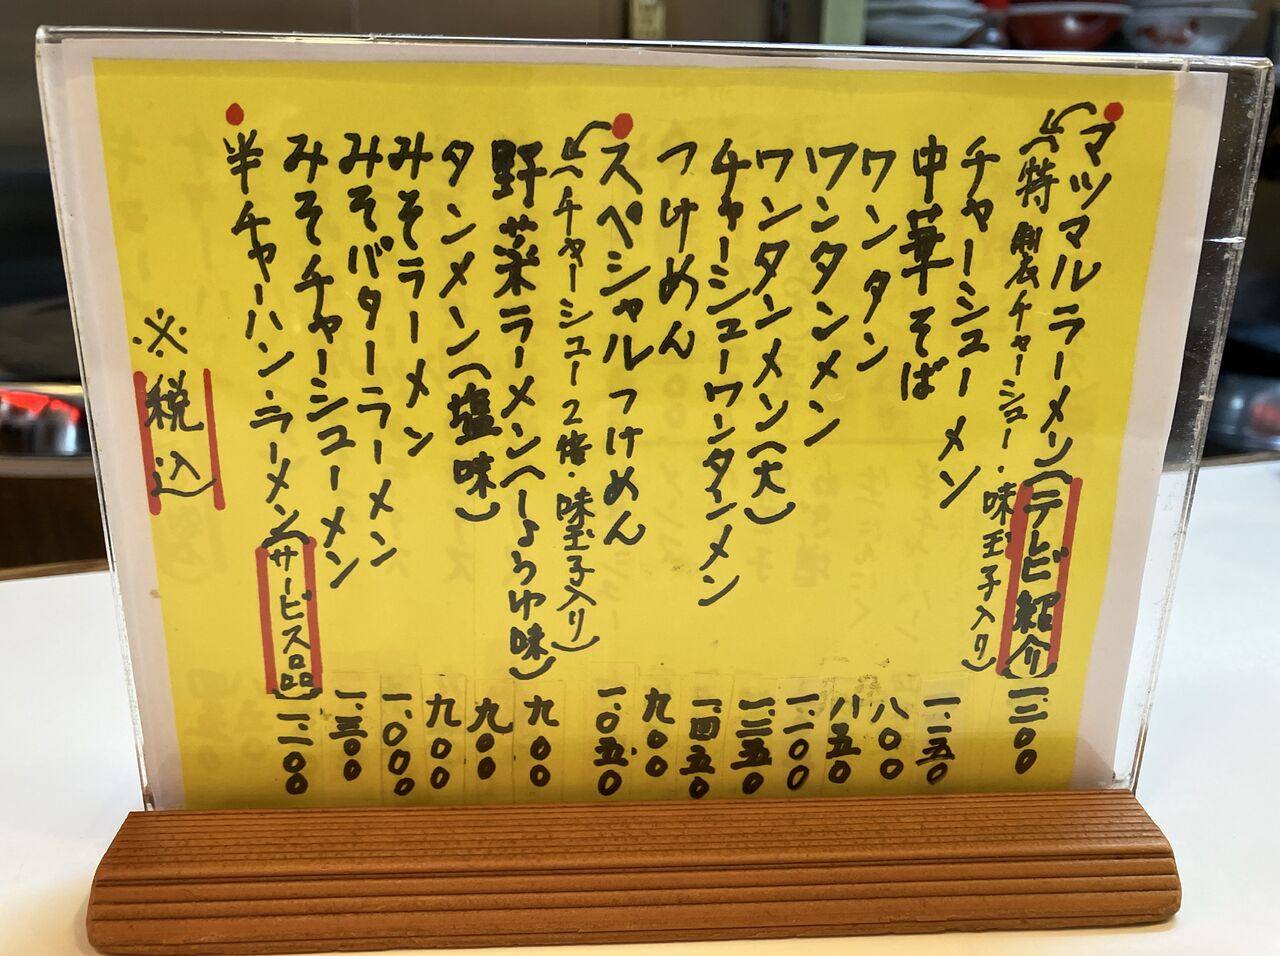 マツマルラーメン(テレビ紹介) 一、三〇〇
(特製チャーシュー・味玉子入り)
チャーシューメン 一、二五〇
中華そば 八〇〇
ワンタン 八五〇
ワンタンメン 一、一〇〇
ワンタンメン(大) 一、二五〇
チャーシューワンタンメン 一、四五〇
つけめん 九〇〇
スペシャルつけめん 一、〇五〇
(チャーシュー2倍・味玉子入り)
野菜ラーメン(しょうゆ味) 九〇〇
タンメン(塩味) 九〇〇
みそラーメン 九〇〇
みそバターラーメン 一、〇〇〇
みそチャーシューメン 一、三〇〇
半チャーハン・ラーメン(サービス品) 一、一〇〇
※税込